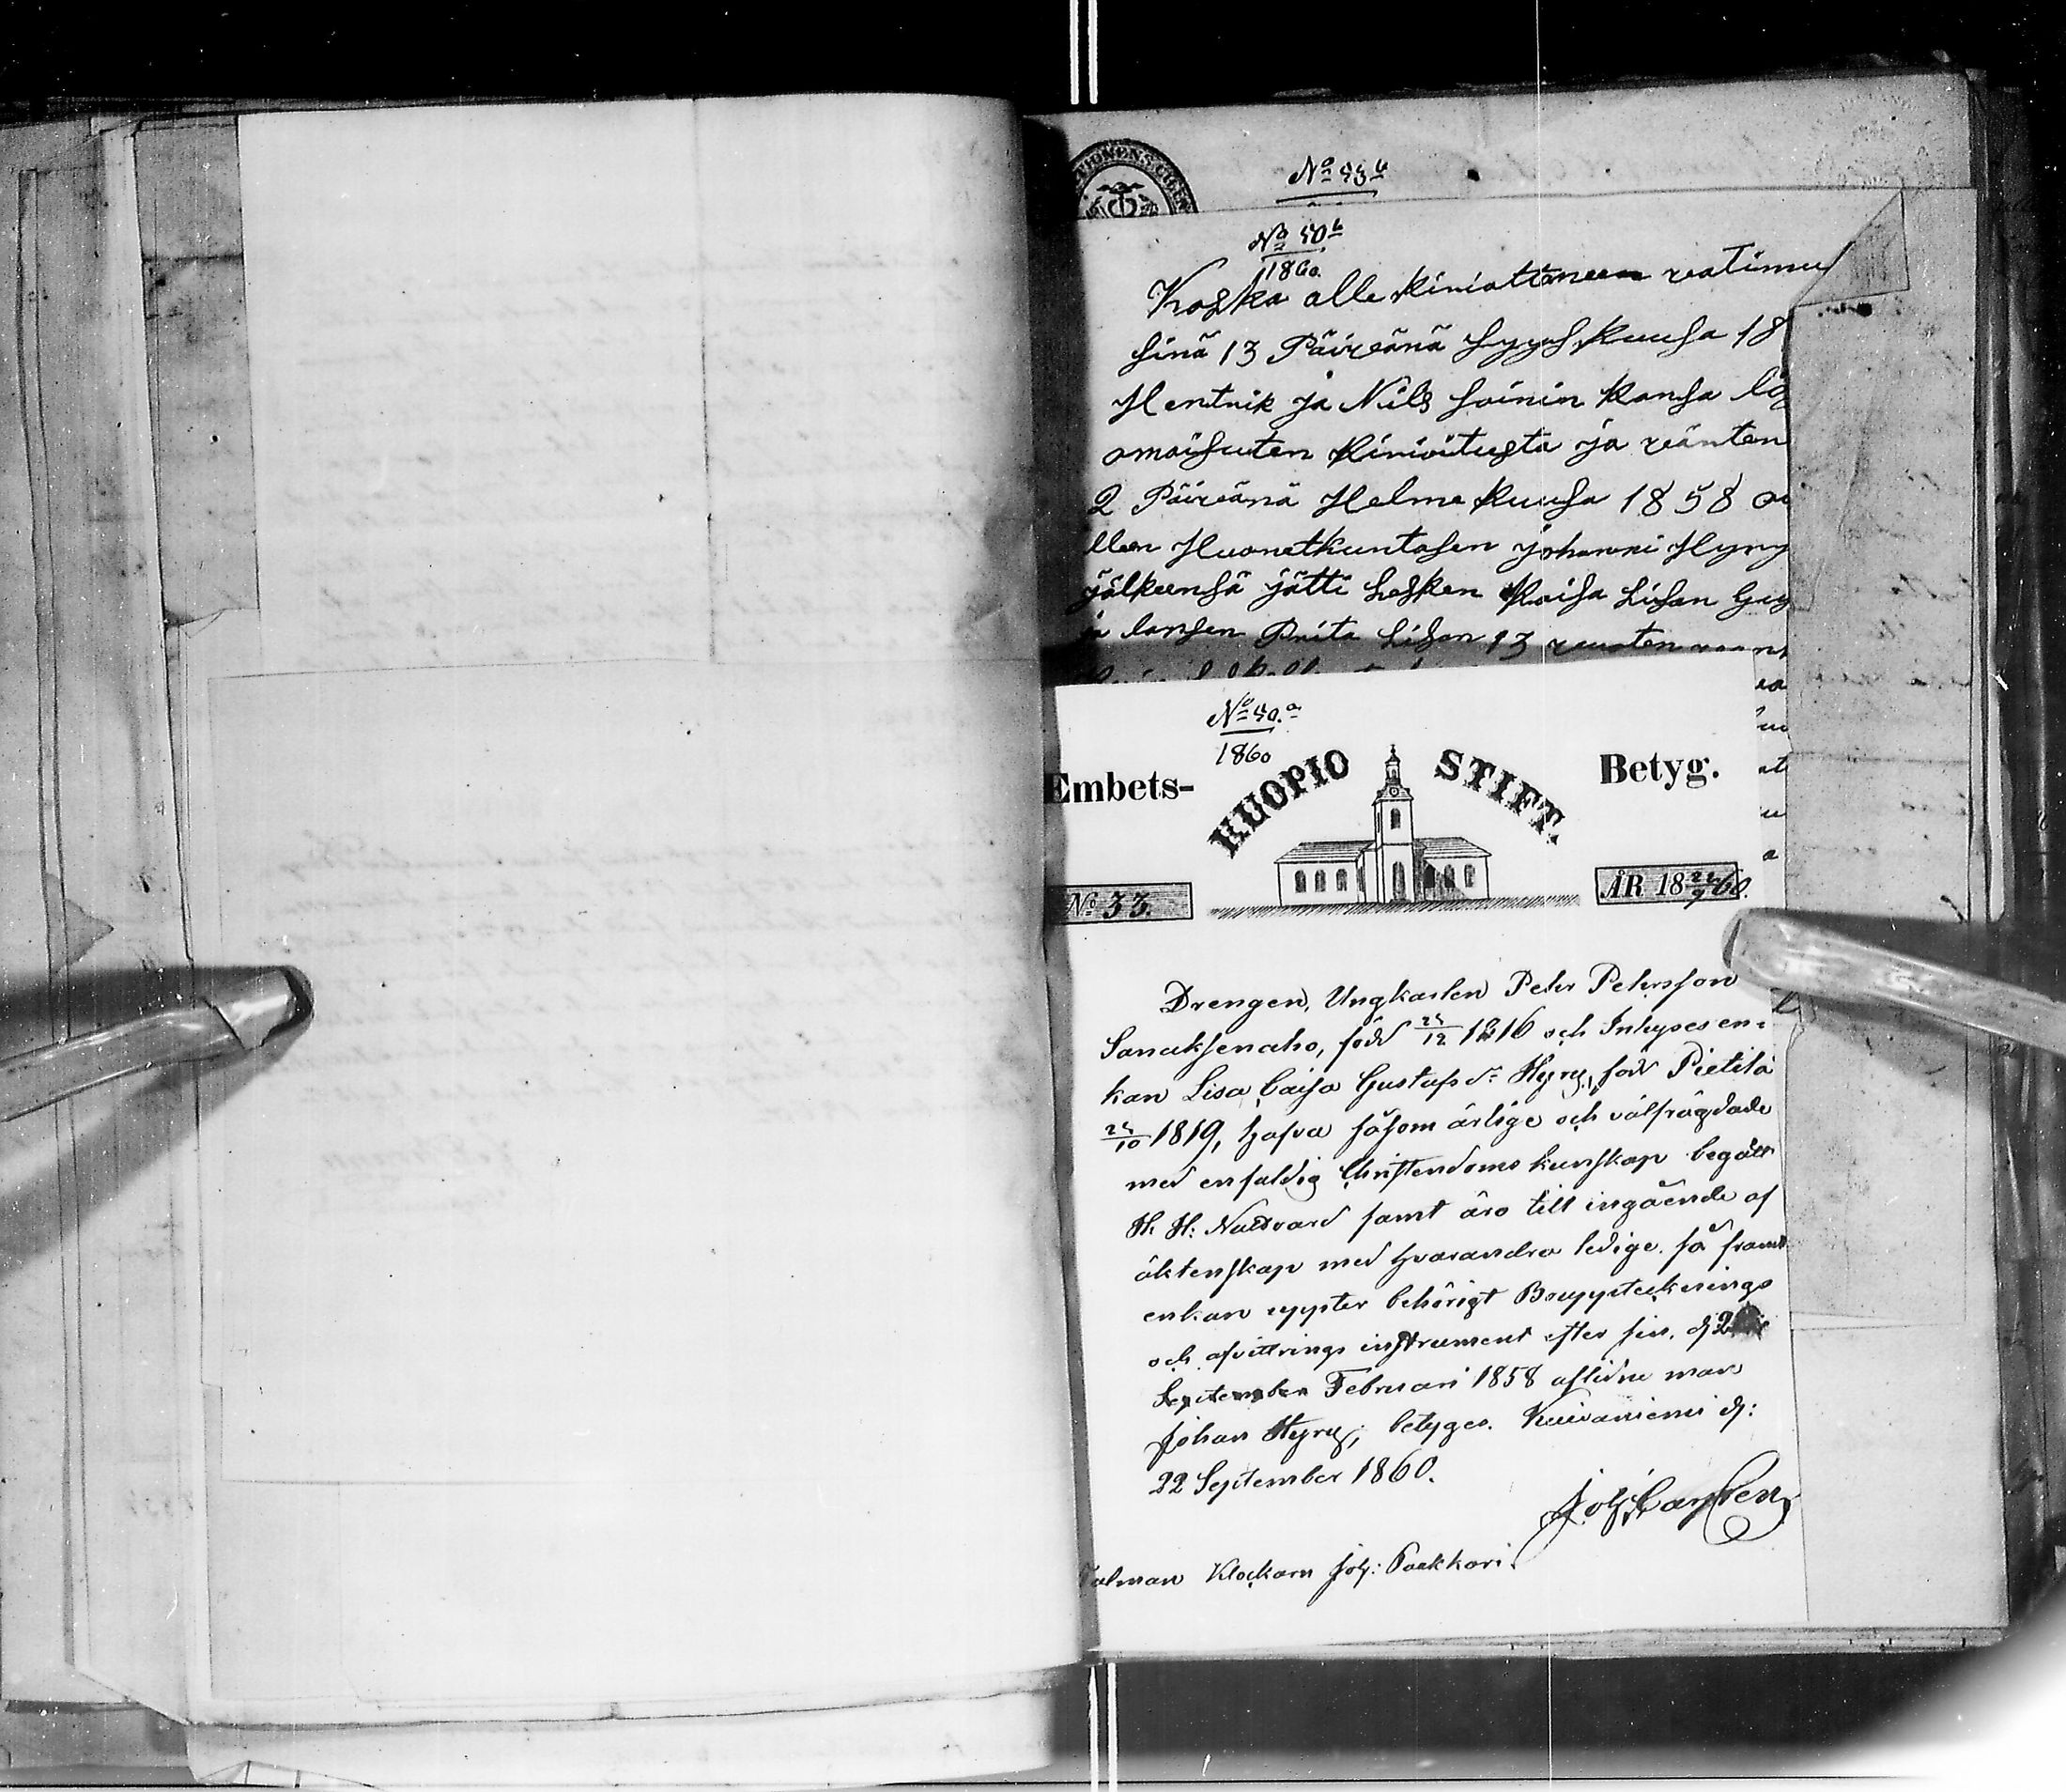 No 53b
No 50b
1860.
Koska alle kirioittaneen
sinä 13 Päiveänä Syyskuusa 18
Hentrik ja Nils Soinin kansa
omaisuten kirioitusta ja
2 Päiveänä Helmekuusa 1858
llen Huonetkuntasen johanni Hyry
jälkeensä jätti Lesken Kaisa Lisan
ja lapsen Prita Lisan 13 vuoten
No 50.a
1860
Embets- KUOPIO STIFT. Betyg.
No 33. ÅR 18 22/9 60.
Drengen, Ungkarlen Peter Petersson
Sanaksenaho, född 25/12 1816 och Inhyses en-
kan Lisa Caisa Gustafs dr Hyry, född Pietilä
25/10 1819, hafva såsom ärlige och välfrägdade
med enfaldig Christendoms kunskap begått
H. H. Nattvard samt äro till ingående af
äktenskap med hvarandra ledige, så framt
enkan uppter behörigt Boupptecknings
och afvittrings instrument efter sin, d. 2
September Februari 1858 aflidne man
Johan Hyry; betyges. Kuivaniemi d:
22 September 1860.
Talman Klockarn Joh: Paakkari.